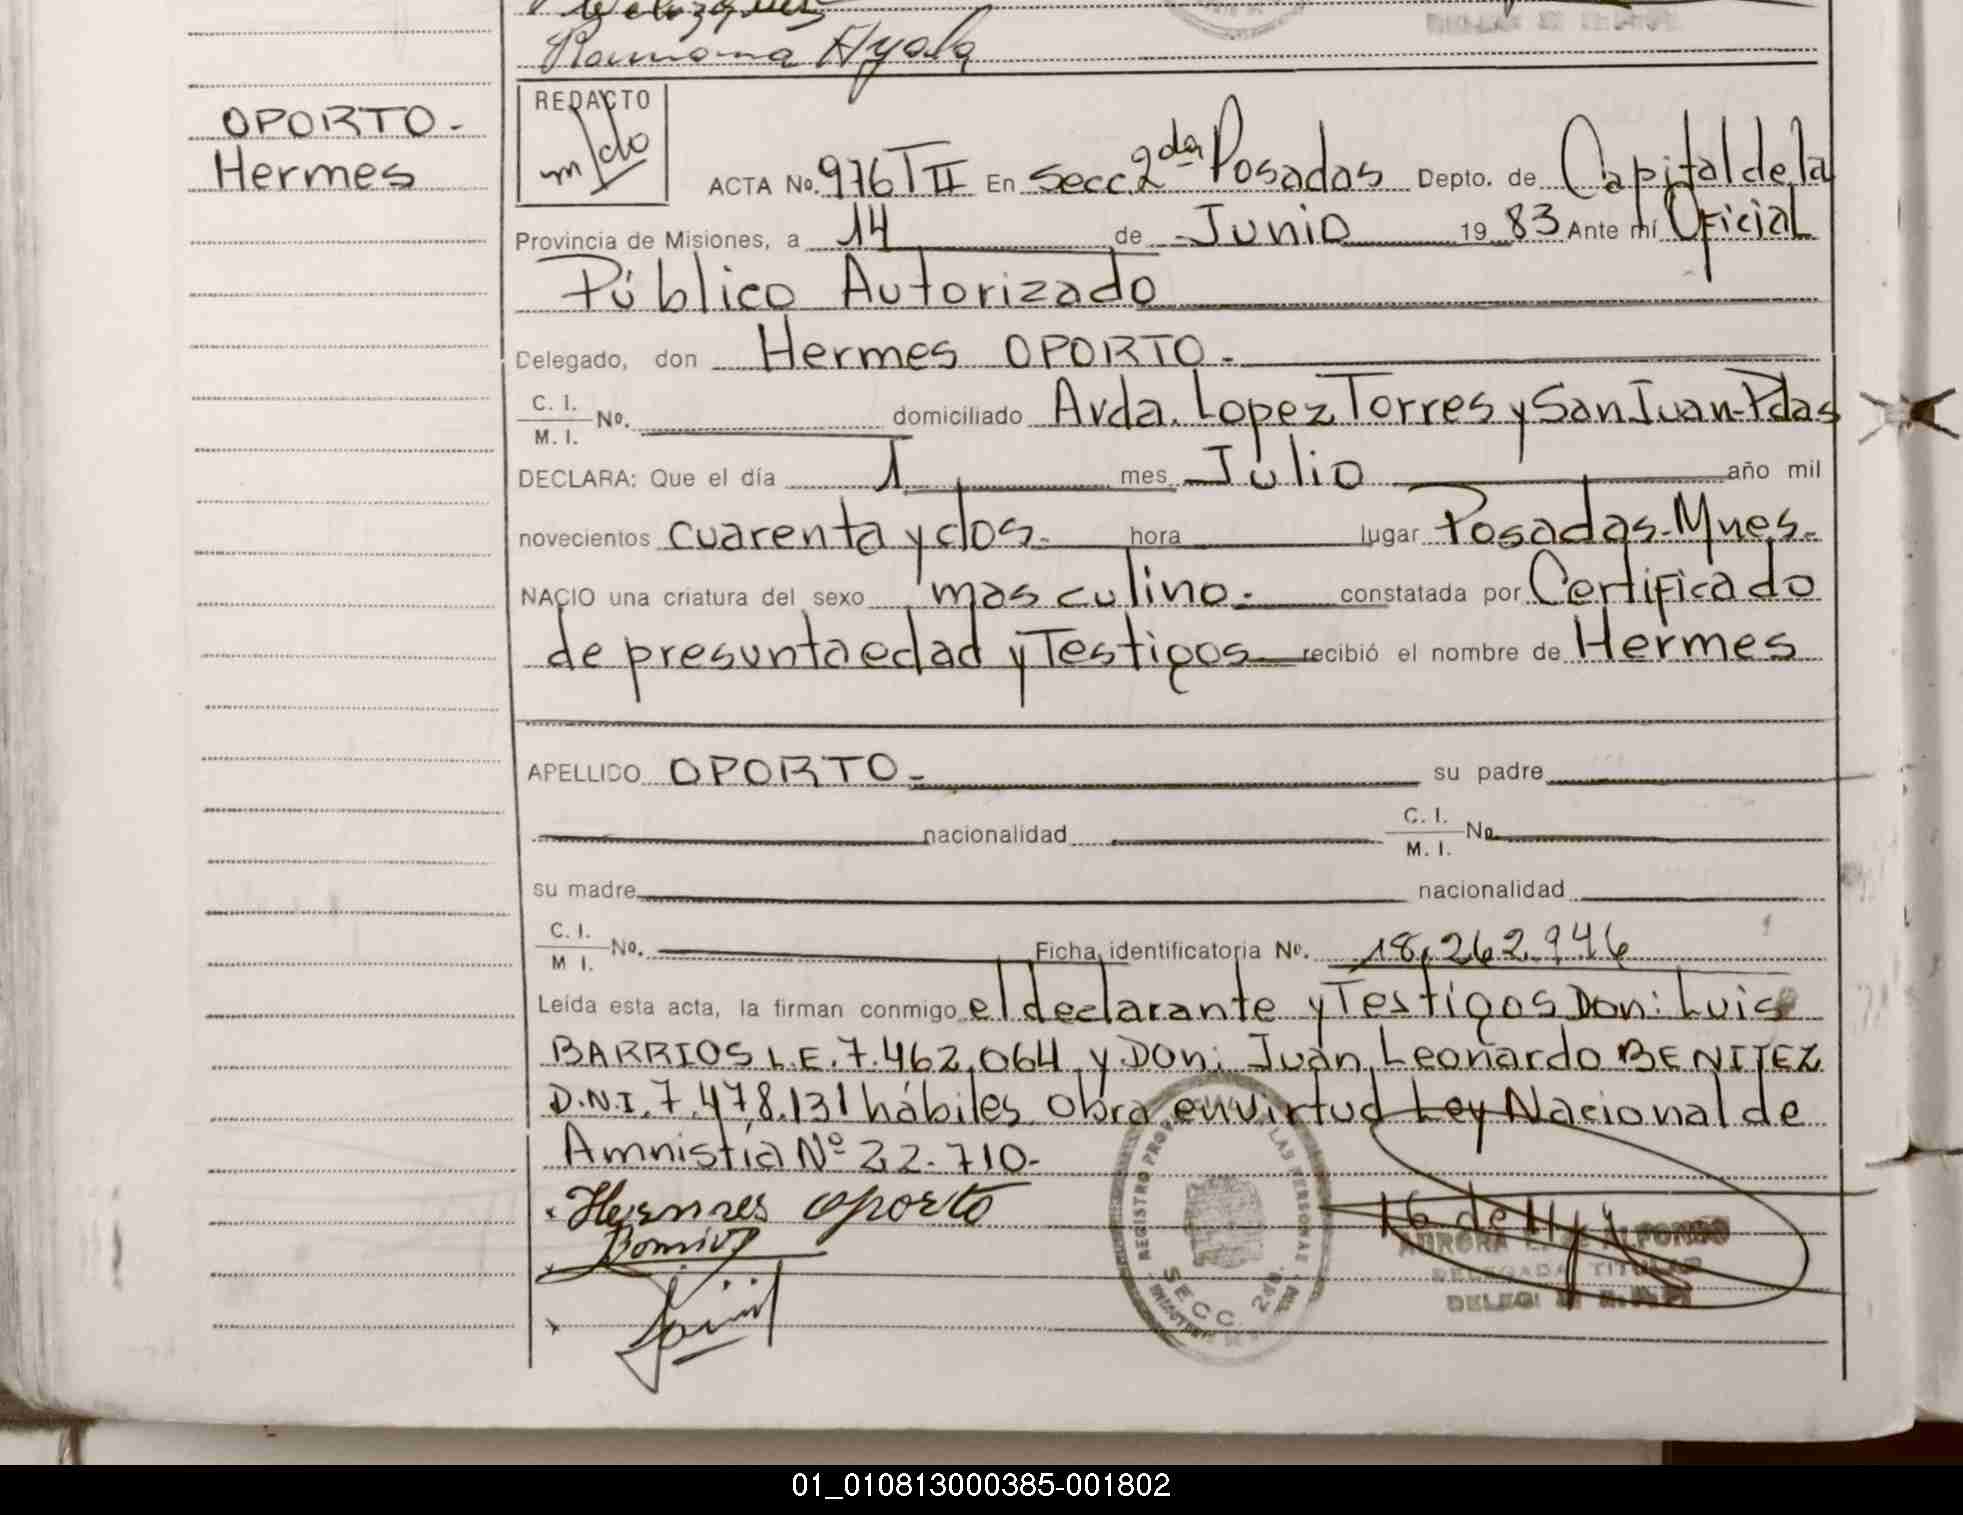 Ramona Ayala
OPORTO.
Hermes
REDACTO
ACTA No. 976 T II En Secc. 2da Posadas Depto. de Capital de la
Provincia de Misiones, a 14 de Junio 19 83 Ante mí Oficial
Público Autorizado
Delegado, don Hermes OPORTO.
C. I.
M. I. No. domiciliado Avda. Lopez Torres y San Juan-Pdas
DECLARA: Que el día 1 mes Julio año mil
novecientos cuarenta y dos. hora lugar Posadas-Mnes.
NACIO una criatura del sexo masculino. constatada por Certificado
de presunta edad y Testigos recibió el nombre de Hermes
APELLIDO OPORTO. su padre
nacionalidad C. I.
M. I. No.
su madre nacionalidad
C. I.
M I. No. Ficha identificatoria No. 18.262.946
Leída esta acta, la firman conmigo el declarante y Testigos Don: Luis
BARRIOS L.E. 7.462.064 y Don: Juan Leonardo BENITEZ
D.N.I. 7.478.131 hábiles. Obra en virtud Ley Nacional de
Amnistía Nº 22.710-
Hermes oporto
REGISTRO PROV. LAS PERSONAS
SECC. 2da.
AURORA ALFONSO
DELEGADA TITULAR
01_010813000385-001802